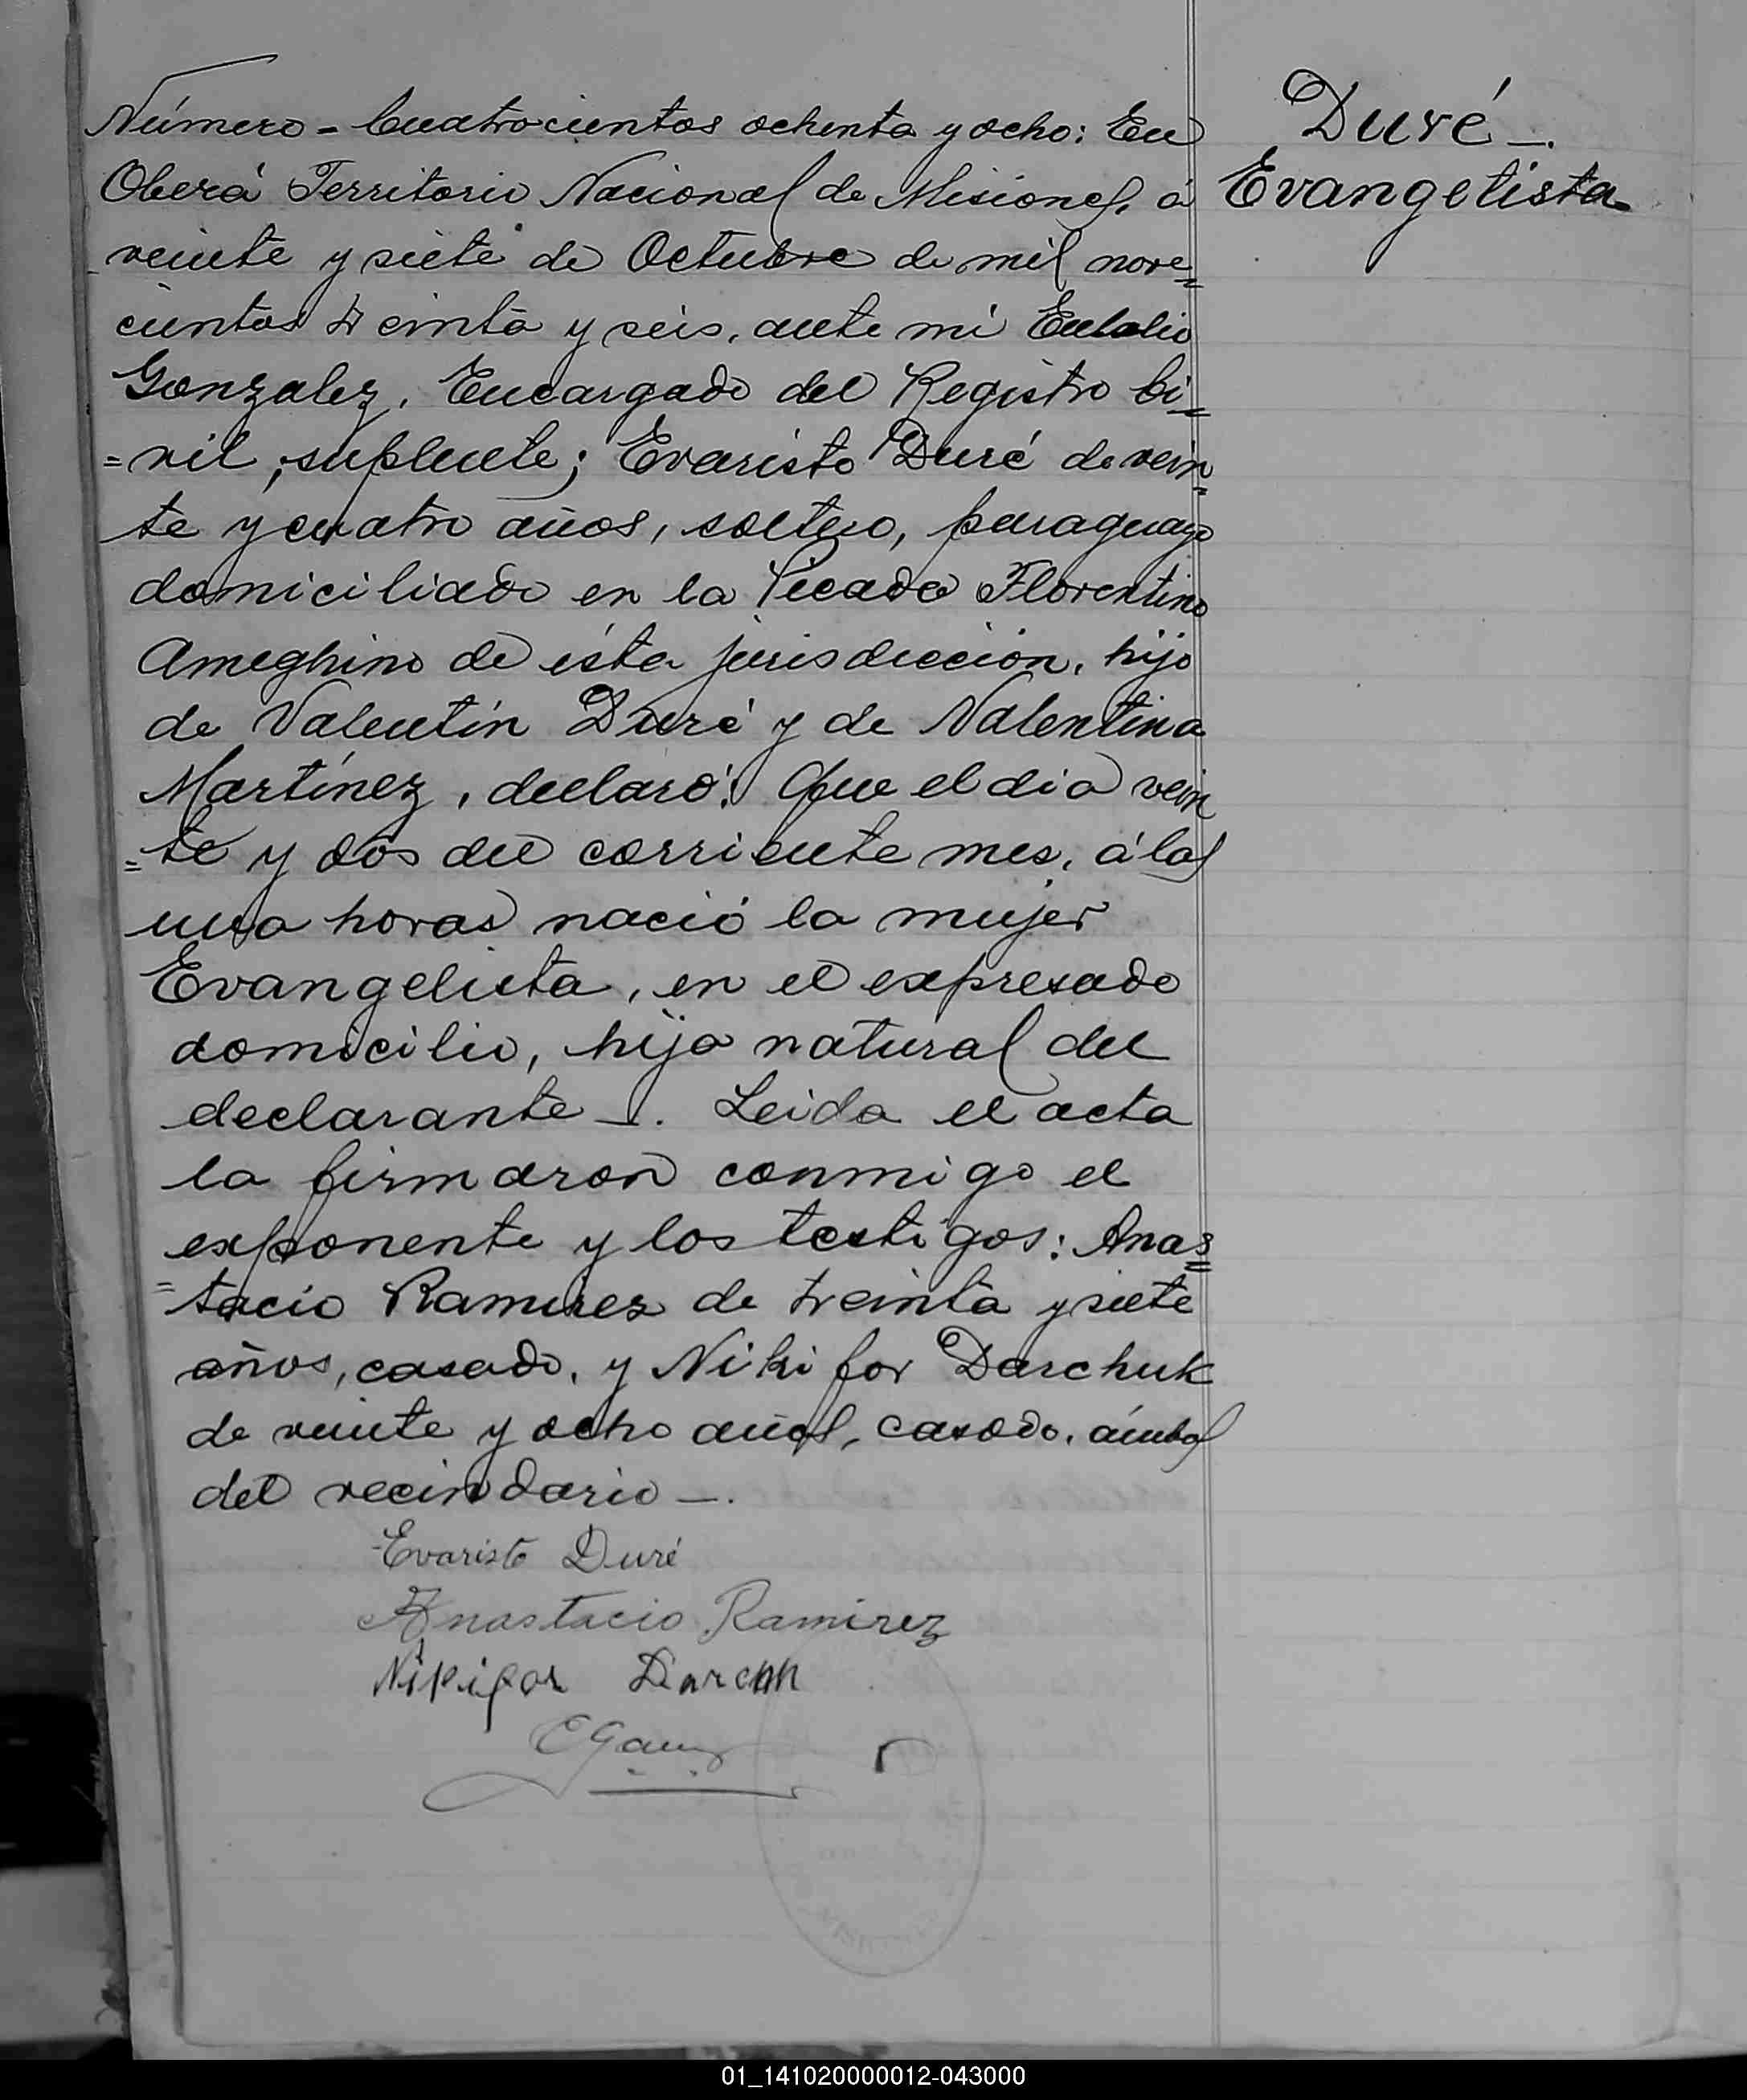 Número = Cuatrocientos ochenta y ocho: En
Oberá Territorio Nacional de Misiones, á
veinte y siete de Octubre de mil nove=
cientos treinta y seis, ante mí Eulalio
Gonzalez, Encargado del Registro Ci=
=vil, suplente; Evaristo Duré de vein=
te y cuatro años, soltero, paraguayo
domiciliado en la Picada Florentino
Ameghino de ésta jurisdicción, hijo
de Valentín Duré y de Valentina
Martínez, declaró: Que el dia vein
=te y dos del corriente mes, á las
una horas nació la mujer
Evangelista, en el expresado
domicilio, hija natural del
declarante _. Leida el acta
la firmaron conmigo el
exponente y los testigos: Anas=
=tacio Ramirez de treinta y siete
años, casado, y Nikifor Darchuk
de veinte y ocho años, casado, ámbos
del vecindario _.
Evaristo Duré
Anastacio Ramirez
Nikifor
Duré _.
Evangelista
01_141020000012-043000